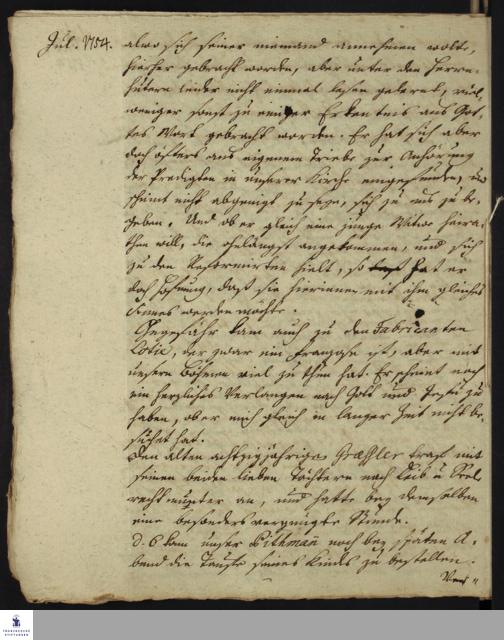 Jul. 1754. alwo sich seiner niemand annehmen wolte,
hierher gebracht worden, aber unter den Herrn-
hütern leider nicht einmal lesen gelernet, viel
weniger sonst zu einiger Erkentnis aus Got-
tes Wort gebracht worden. Er hat sich aber
doch öfters aus eigenem Triebe zur Anhörung
der Predigten in unserer Kirche eingefunden, und
scheint nicht abgeneigt zu seyn, sich zu uns zu be-
geben. Und ob er gleich eine junge Witwe heira-
then will, die ohnlängst angekommen, und sich
zu den Reformirten hielt, so hat er
doch Hofnung, daß sie hierinnen mit ihm gleiches
Sinnes werden möchte.
Ohngefähr kam auch zu den Fabricanten
der zwar ein Franzose ist, aber mit
unsern Böhmen viel zu thun hat. Er scheint noch
ein herzliches Verlangen nach Gott und Jesu zu
haben, ob er mich gleich in langer Zeit nicht be-
suchet hat.
Den alten achtzigjährigen traf mit
seinen beiden lieben Töchtern nach Leib u Seel
recht munter an, und hatte bey demselben
eine besonders vergnügte Stunde.
d. 6 kam unser Pithman noch bey späten A-
bend die Taufe seines Kindes zu bestellen.